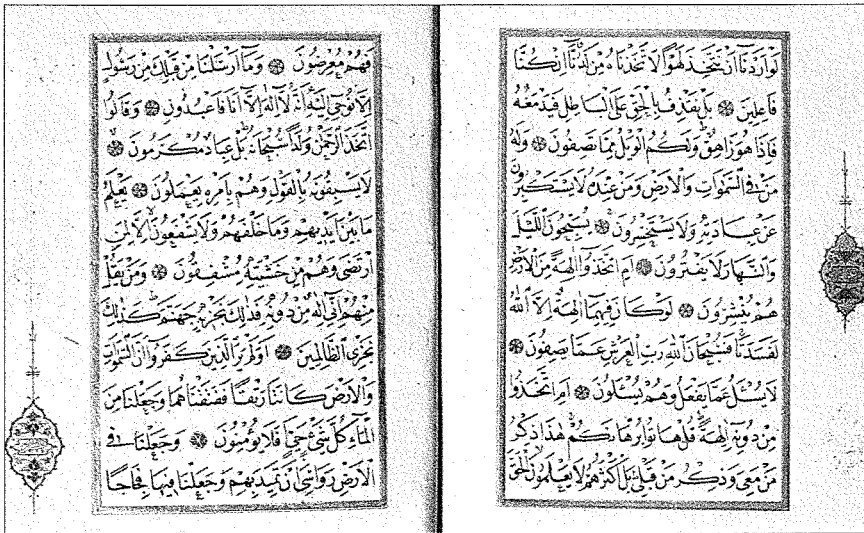 لَوْ اَرَدْنَٓا اَنْ نَتَّخِذَ لَهْوًا لَاتَّخَذْنَاهُ مِنْ لَدُنَّٓا اِنْ كُنَّا
فَاعِلٖينَ ❁ بَلْ نَقْذِفُ بِالْحَقِّ عَلَى الْبَاطِلِ فَيَدْمَغُهُ
فَاِذَا هُوَ زَاهِقٌ وَلَكُمُ الْوَيْلُ مِمَّا تَصِفُونَ ❁ وَلَهُ
مَنْ فِى السَّمٰوَاتِ وَالْاَرْضِ وَمَنْ عِنْدَهُ لَا يَسْتَكْبِرُونَ
عَنْ عِبَادَتِهٖ وَلَا يَسْتَحْسِرُونَ ❁ يُسَبِّحُونَ الَّيْلَ
وَالنَّهَارَ لَا يَفْتُرُونَ ❁ اَمِ اتَّخَذُٓوا اٰلِهَةً مِنَ الْاَرْضِ
هُمْ يُنْشِرُونَ ❁ لَوْ كَانَ فٖيهِمَٓا اٰلِهَةٌ اِلَّا اللّٰهُ
لَفَسَدَتَا فَسُبْحَانَ اللّٰهِ رَبِّ الْعَرْشِ عَمَّا يَصِفُونَ ❁
لَا يُسْـَٔلُ عَمَّا يَفْعَلُ وَهُمْ يُسْـَٔلُونَ ❁ اَمِ اتَّخَذُوا
مِنْ دُونِهٖٓ اٰلِهَةً قُلْ هَاتُوا بُرْهَانَكُمْ هٰذَا ذِكْرُ
مَنْ مَعِىَ وَذِكْرُ مَنْ قَبْلٖى بَلْ اَكْثَرُهُمْ لَا يَعْلَمُونَ الْحَقَّ
فَهُمْ مُعْرِضُونَ ❁ وَمَٓا اَرْسَلْنَا مِنْ قَبْلِكَ مِنْ رَسُولٍ
اِلَّا نُوحٖٓى اِلَيْهِ اَنَّهُ لَٓا اِلٰهَ اِلَّٓا اَنَا فَاعْبُدُونِ ❁ وَقَالُوا
اتَّخَذَ الرَّحْمٰنُ وَلَدًا سُبْحَانَهُ بَلْ عِبَادٌ مُكْرَمُونَ ❁
لَا يَسْبِقُونَهُ بِالْقَوْلِ وَهُمْ بِاَمْرِهٖ يَعْمَلُونَ ❁ يَعْلَمُ
مَا بَيْنَ اَيْدٖيهِمْ وَمَا خَلْفَهُمْ وَلَا يَشْفَعُونَ اِلَّا لِمَنِ
ارْتَضٰى وَهُمْ مِنْ خَشْيَتِهٖ مُشْفِقُونَ ❁ وَمَنْ يَقُلْ
مِنْهُمْ اِنّٖٓى اِلٰهٌ مِنْ دُونِهٖ فَذٰلِكَ نَجْزٖيهِ جَهَنَّمَ كَذٰلِكَ
نَجْزِى الظَّالِمٖينَ ❁ اَوَلَمْ يَرَ الَّذٖينَ كَفَرُٓوا اَنَّ السَّمٰوَاتِ
وَالْاَرْضَ كَانَتَا رَتْقًا فَفَتَقْنَاهُمَا وَجَعَلْنَا مِنَ
الْمَٓاءِ كُلَّ شَىْءٍ حَىٍّ اَفَلَا يُؤْمِنُونَ ❁ وَجَعَلْنَا فِى
الْاَرْضِ رَوَاسِىَ اَنْ تَمٖيدَ بِهِمْ وَجَعَلْنَا فٖيهَا فِجَاجًا